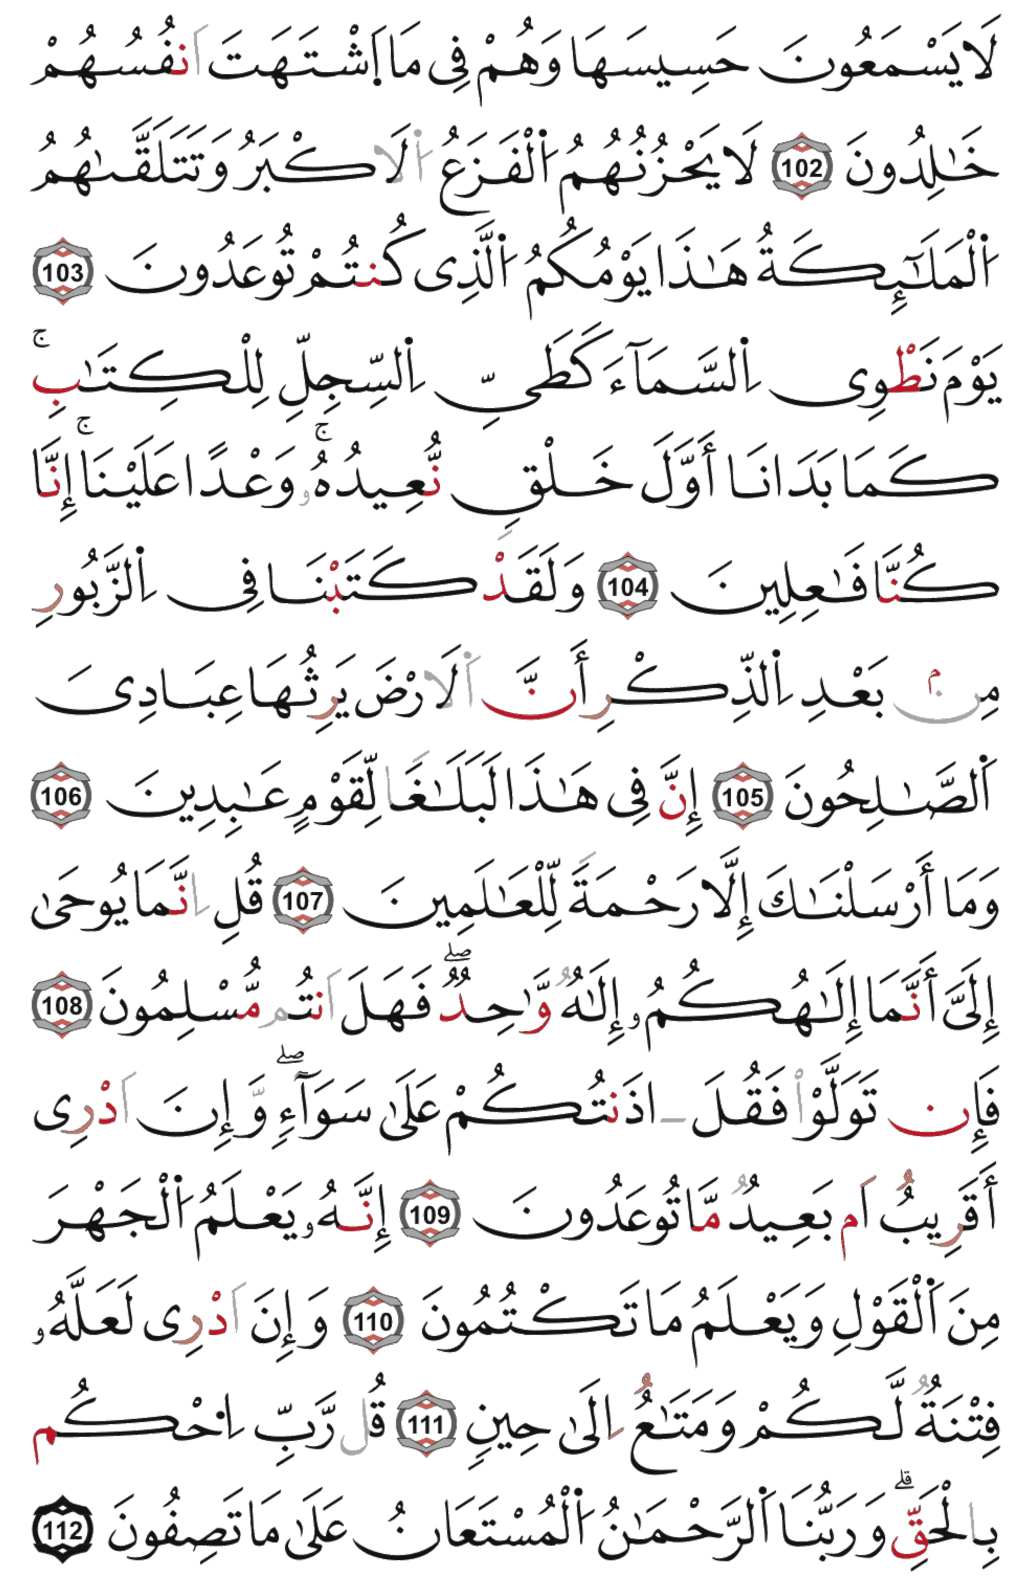 لَا يَسْمَعُونَ حَسِيسَهَا وَهُمْ فِى مَا اَ۪شْتَهَتَ اَنفُسُهُمْ
خَٰلِدُونَ 102 لَا يَحْزُنُهُمُ اُ۬لْفَزَعُ اُ۬لَاكْبَرُ وَتَتَلَقَّىٰهُمُ
اُ۬لْمَلَٰٓئِكَةُ هَٰذَا يَوْمُكُمُ اُ۬لَّذِى كُنتُمْ تُوعَدُونَ 103
يَوْمَ نَطْوِى اِ۬لسَّمَآءَ كَطَىِّ اِ۬لسِّجِلِّ لِلْكِتَٰبِۚ
كَمَا بَدَانَا أَوَّلَ خَلْقٍ نُّعِيدُهُۥۚ وَعْدًا عَلَيْنَاۚ إِنَّا
كُنَّا فَٰعِلِينَ 104 وَلَقَدْ كَتَبْنَا فِى اِ۬لزَّبُورِ
مِنۢ بَعْدِ اِ۬لذِّكْرِ أَنَّ اَ۬لَارْضَ يَرِثُهَا عِبَادِىَ
اَ۬لصَّٰلِحُونَ 105 إِنَّ فِى هَٰذَا لَبَلَٰغًا لِّقَوْمٍ عَٰبِدِينَ 106
وَمَا أَرْسَلْنَٰكَ إِلَّا رَحْمَةً لِّلْعَٰلَمِينَ 107 قُلِ اِنَّمَا يُوحَىٰ
إِلَىَّ أَنَّمَا إِلَٰهُكُمُۥ إِلَٰهٌ وَٰحِدٌۖ فَهَلَ اَنتُم مُّسْلِمُونَ 108
فَإِن تَوَلَّوْاْ فَقُلَ ـاذَنتُكُمْ عَلَىٰ سَوَآءٍۖ وَّإِنَ اَدْرِى
أَقَرِيبٌ اَم بَعِيدٌ مَّا تُوعَدُونَ 109 إِنَّهُۥ يَعْلَمُ اُ۬لْجَهْرَ
مِنَ اَ۬لْقَوْلِ وَيَعْلَمُ مَا تَكْتُمُونَ 110 وَإِنَ اَدْرِى لَعَلَّهُۥ
فِتْنَةٌ لَّكُمْ وَمَتَٰعٌ اِلَىٰ حِينٍ 111 قُل رَّبِّ اِ۟حْكُم
بِالْحَقِّۗ وَرَبُّنَا اَ۬لرَّحْمَٰنُ اُ۬لْمُسْتَعَانُ عَلَىٰ مَا تَصِفُونَ 112